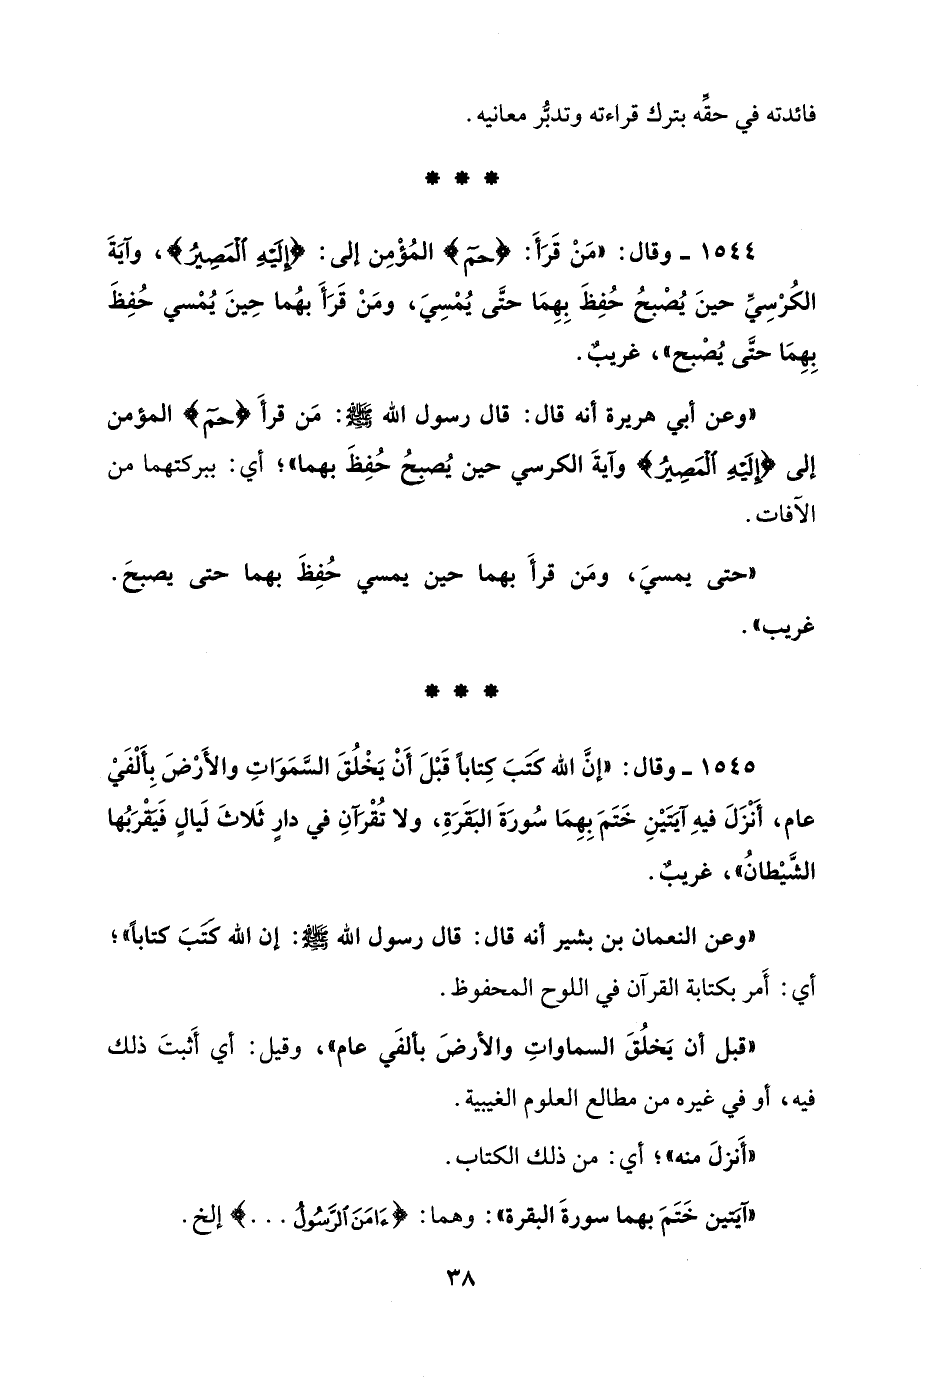 فائدته في حقِّه بترك قراءته وتدبُّر معانيه .
* * *
١٥٤٤ ـ وقال: «مَنْ قَرَأَ: ﴿حمٓ﴾ المُؤْمِن إلى: ﴿إِلَيْهِ ٱلْمَصِيرُ﴾، وآيَةَ
الكُرْسِيِّ حينَ يُصْبحُ حُفِظَ بِهِمَا حتَّى يُمْسِيَ، ومَنْ قَرَأَ بهُما حِينَ يُمْسي حُفِظَ
بِهِمَا حتَّى يُصْبح»، غريبٌ.
«وعن أبي هريرة أنه قال: قال رسول الله ﷺ: مَن قرأَ ﴿حمٓ﴾ المؤمن
إلى ﴿إِلَيْهِ ٱلْمَصِيرُ﴾ وآيةَ الكرسي حين يُصبحُ حُفِظَ بهما»؛ أي: ببركتهما من
الآفات.
«حتى يمسيَ، ومَن قرأَ بهما حين يمسي حُفِظَ بهما حتى يصبحَ.
غريب».
* * *
١٥٤٥ ـ وقال: «إنَّ الله كَتَبَ كِتاباً قَبْلَ أَنْ يَخْلُقَ السَّمَوَاتِ والأَرْضَ بِأَلْفَيْ
عام، أَنْزَلَ فيهِ آيَتَيْنِ خَتَمَ بِهِمَا سُورَةَ البَقَرَةِ، ولا تُقْرَآنِ في دارٍ ثَلاثَ لَيالٍ فَيَقْرَبُها
الشَّيْطانُ»، غريبٌ.
«وعن النعمان بن بشير أنه قال: قال رسول الله ﷺ: إن الله كَتَبَ كتاباً»؛
أي: أَمر بكتابة القرآن في اللوح المحفوظ.
«قبل أن يَخلُقَ السماواتِ والأرضَ بألفَي عام»، وقيل: أي أَثبتَ ذلك
فيه، أو في غيره من مطالع العلوم الغيبية.
«أَنزلَ منه»؛ أي: من ذلك الكتاب.
«آيَتين خَتَمَ بهما سورةَ البقرة»: وهما: ﴿ءَامَنَ ٱلرَّسُولُ ...﴾ إلخ.
٣٨